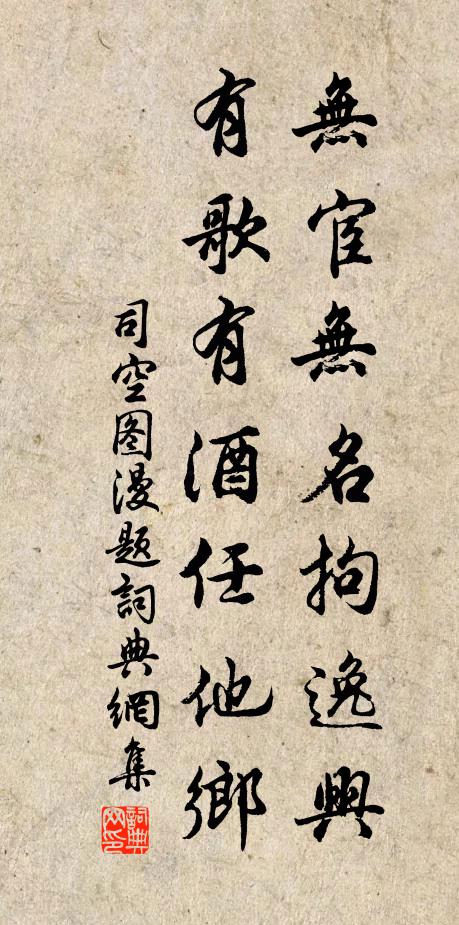 無宦無名拘逸興
有歌有酒任他鄉
司空图漫题詞典網集
詞典
网印